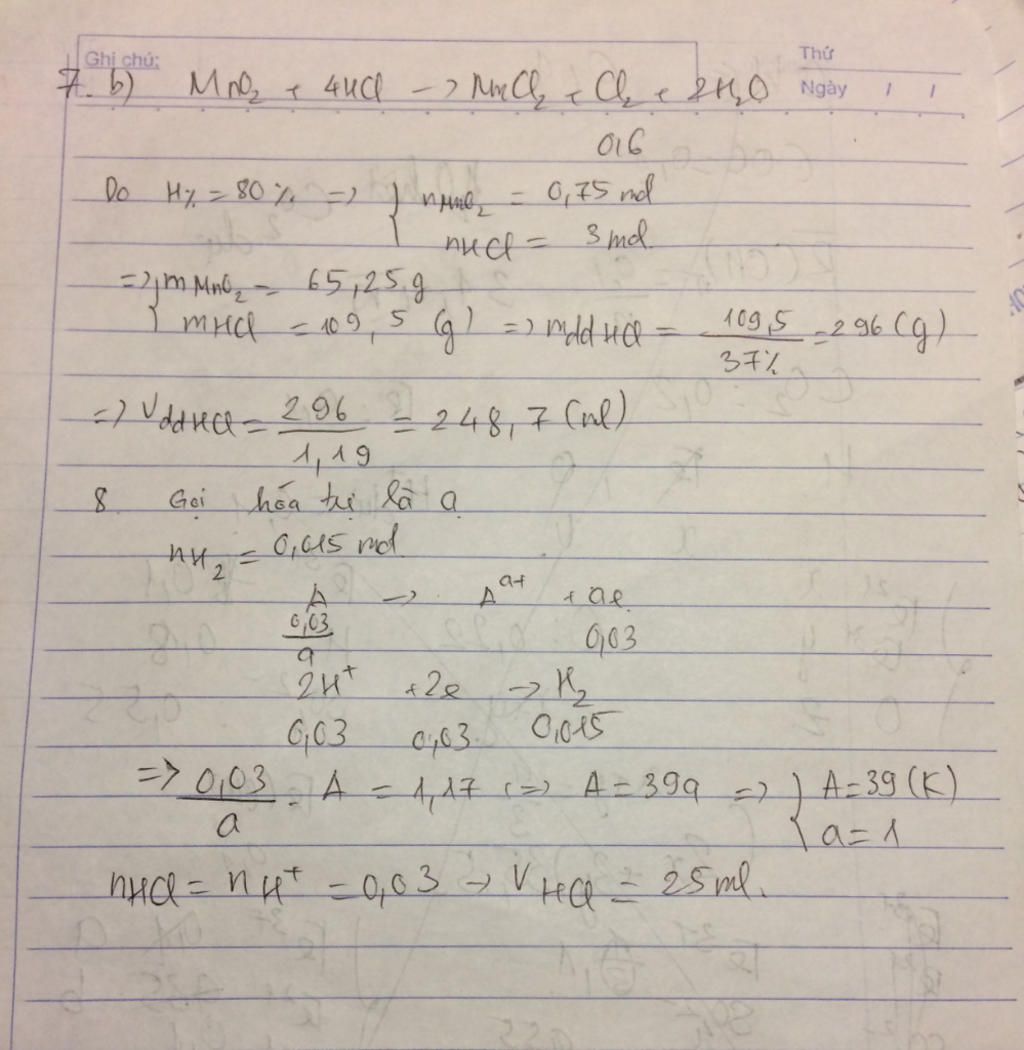 Ghi chú:
Thứ
Ngày / /
7. b) MnO₂ + 4HCl -> MnCl₂ + Cl₂ + 2H₂O
0,6
Do H% = 80% => { nMnO₂ = 0,75 mol
nHCl = 3 mol.
=> { mMnO₂ = 65,25 g
mHCl = 109,5 (g) => mddHCl = 109,5 / 37% = 296 (g)
=> VddHCl = 296 / 1,19 = 248,7 (ml)
8. Gọi hóa trị là a
nH₂ = 0,015 mol.
A -> Aᵃ⁺ + ae
0,03 / a 0,03
2H⁺ + 2e -> H₂
0,03 0,03 0,015
=> 0,03 / a . A = 1,17 (=> A = 39a => { A = 39 (K)
a = 1
nHCl = nH⁺ = 0,03 -> VHCl = 25 ml.